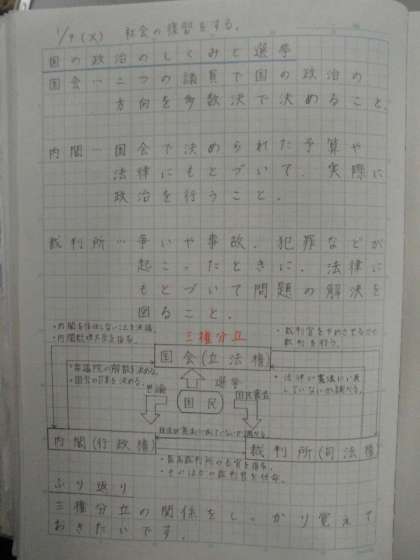 1/9(火) 社会の復習をする。
国の政治のしくみと選挙
国会…二つの議員で国の政治の
方向を多数決で決めること。
内閣…国会で決められた予算や
法律にもとづいて、実際に
政治を行うこと。
裁判所…争いや事故、犯罪などが
起こったときに、法律に
もとづいて問題の解決を
図ること。
三権分立
・内閣を信任しないことを決議。
・内閣総理大臣を指名。
・裁判官をやめさせるなど
裁判を行う。
国会(立法権)
・衆議院の解散を決める。
・国会の召集を決める。
・法律が憲法にい反
していないか調べる。
選挙
世論
国民
国民審査
政治が憲法に反していないか調べる。
内閣(行政権)
裁判所(司法権)
・最高裁判所の長官を指名。
・その他の裁判官を任命。
ふり返り
三権分立の関係をしっかり覚えて
おきたいです。